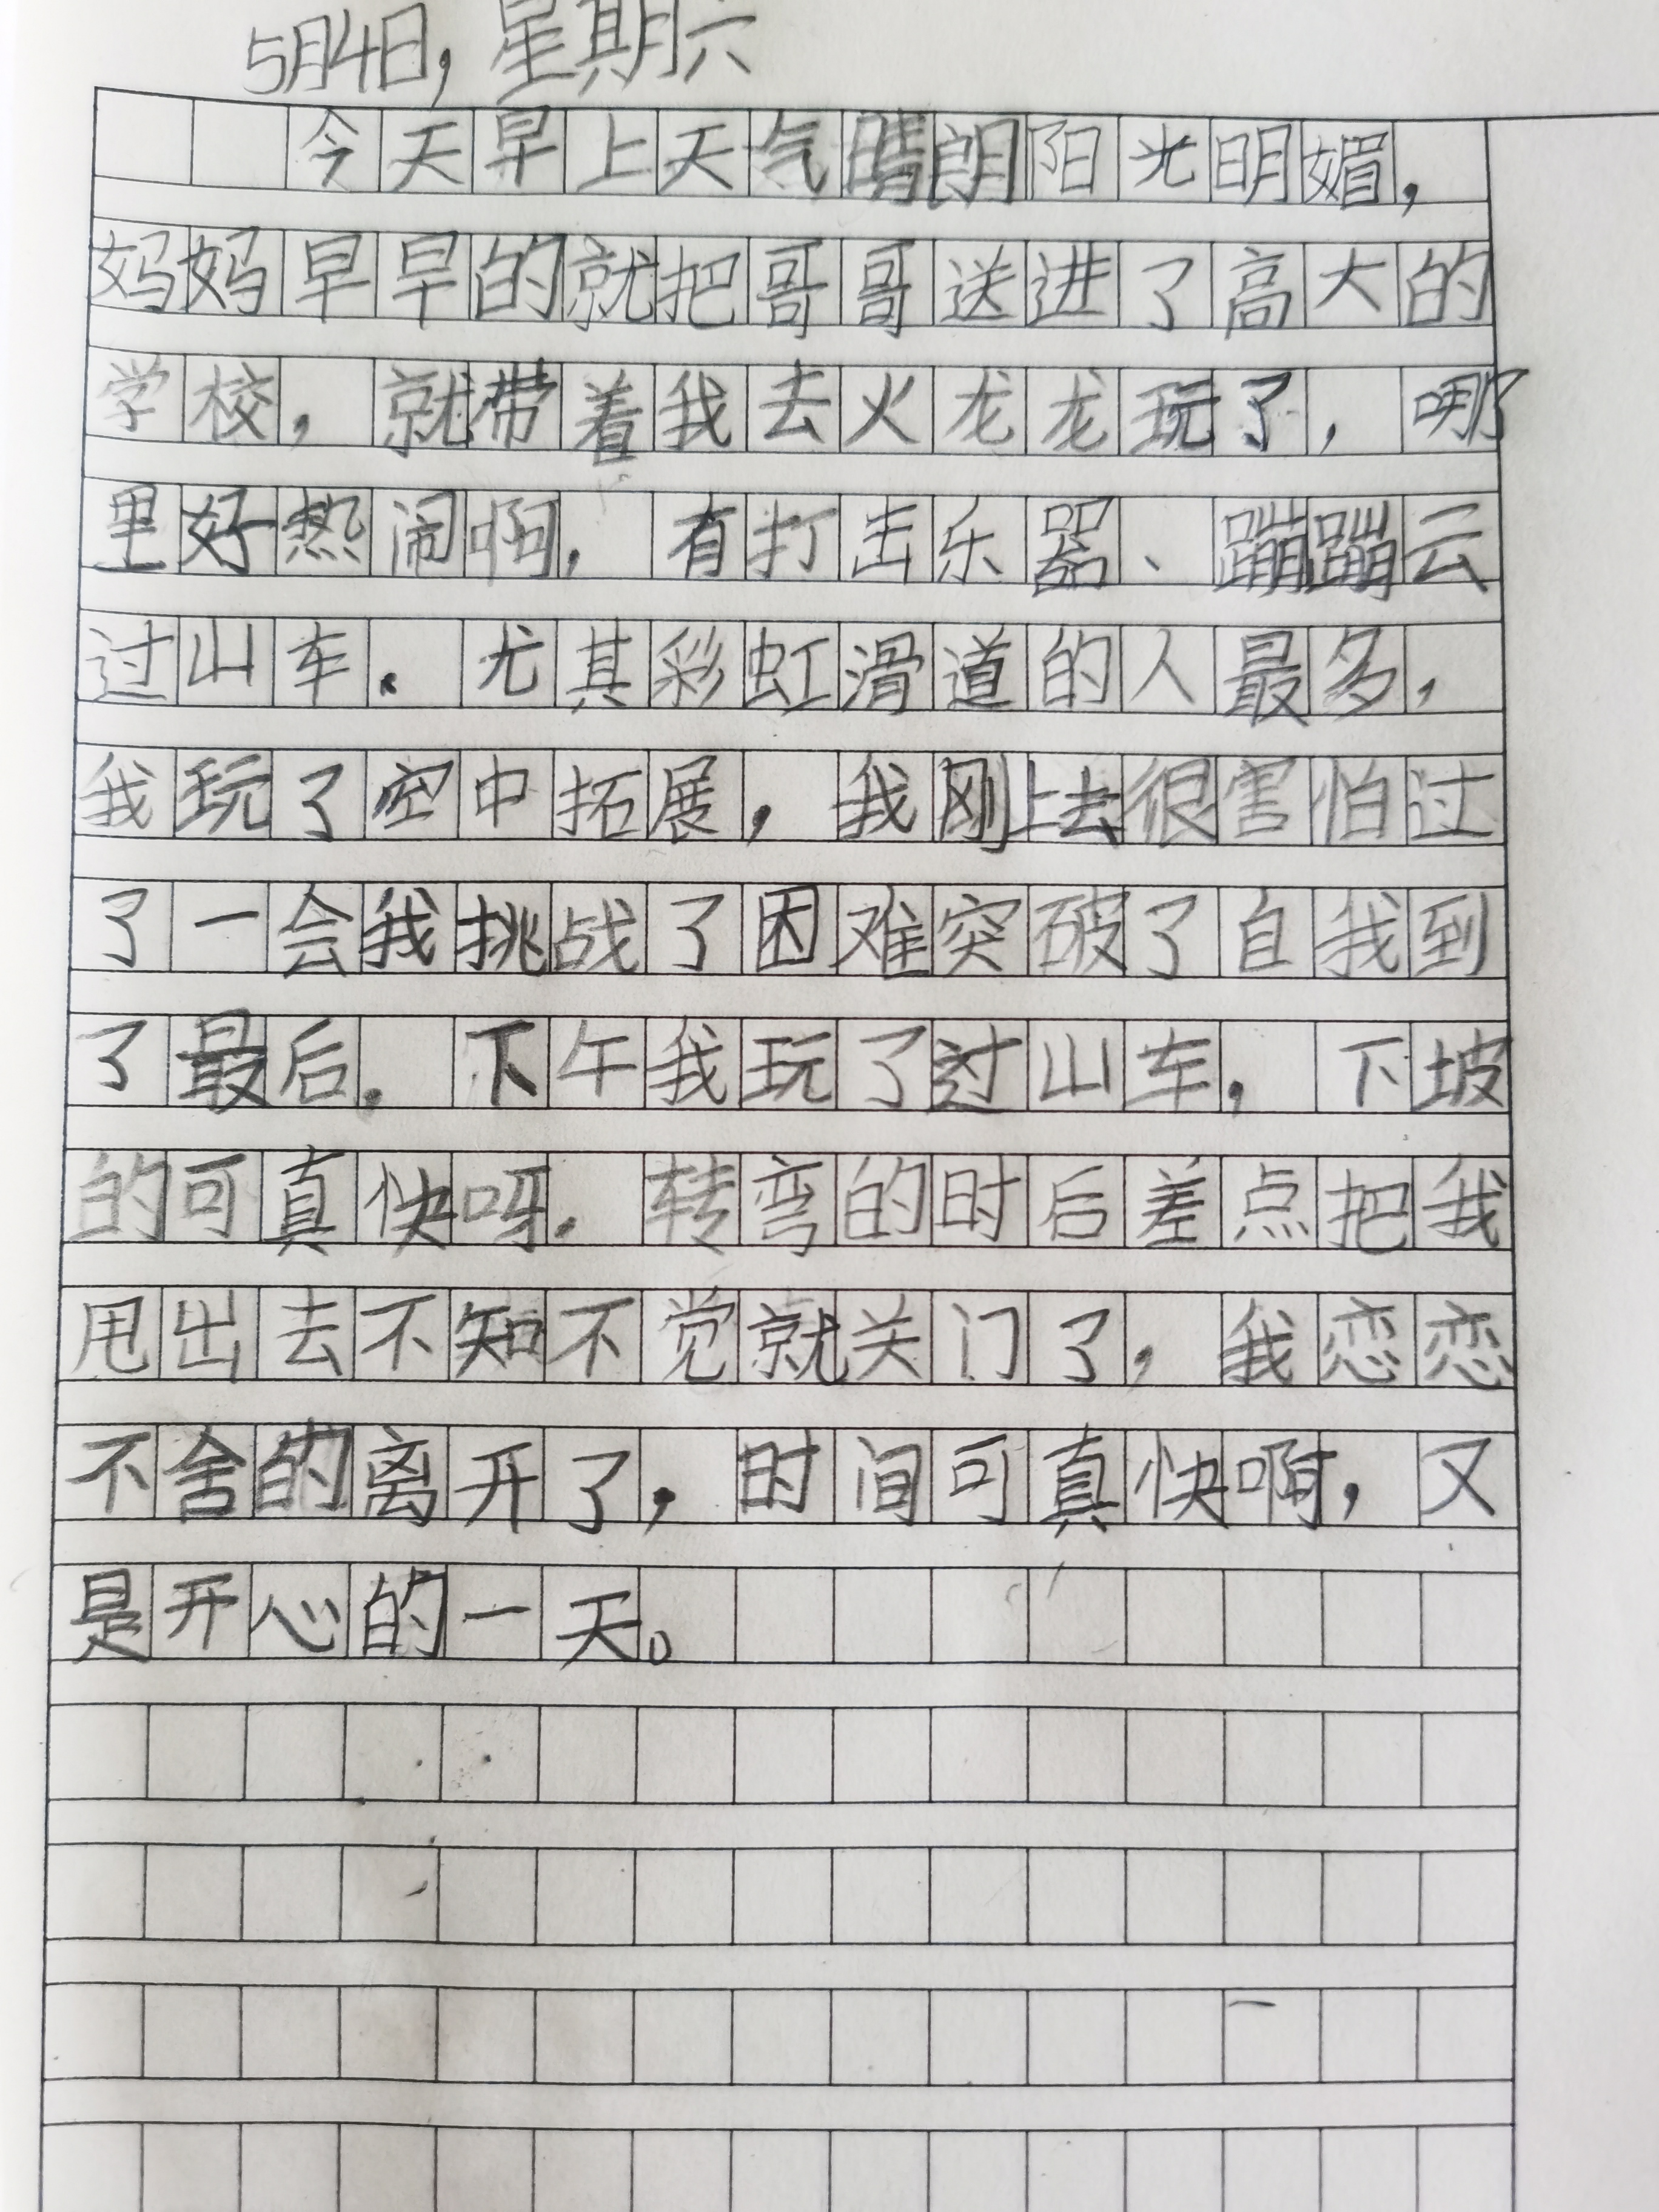 5月4日，星期六
今天早上天气晴朗阳光明媚，
妈妈早早的就把哥哥送进了高大的
学校，就带着我去火龙龙玩了，哪
里好热闹啊，有打击乐器、蹦蹦云
过山车。尤其彩虹滑道的人最多，
我玩了空中拓展，我刚上去很害怕过
了一会我挑战了困难突破了自我到
了最后。下午我玩了过山车，下坡
的可真快呀。转弯的时后差点把我
甩出去不知不觉就关门了，我恋恋
不舍的离开了，时间可真快啊，又
是开心的一天。